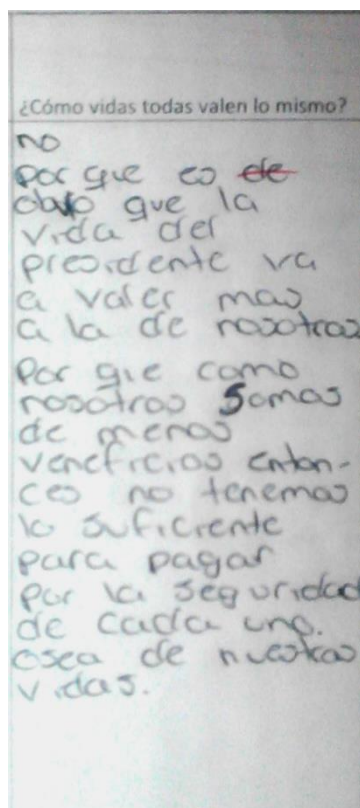 ¿Cómo vidas todas valen lo mismo?
no
por que es de
obvio que la
vida del
presidente va
a valer mas
a la de nosotros
Por que como
nosotros somos
de menos
veneficios enton-
ces no tenemos
lo suficiente
para pagar
por la seguridad
de cada uno.
osea de nuestras
vidas.